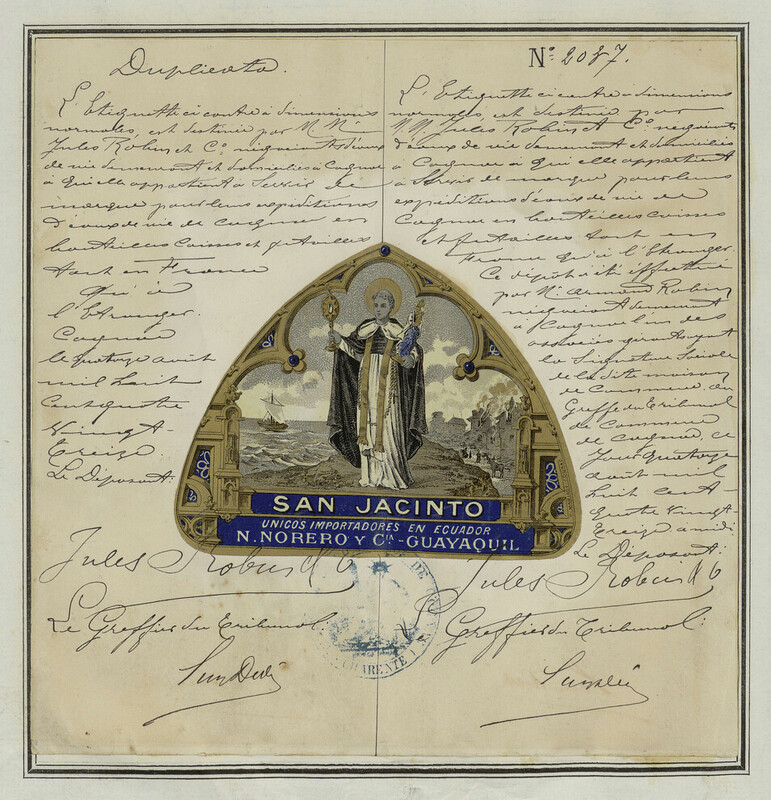 Duplicata.
L'Etiquette ci contre à dimensions
normales, est destinée par M.M.
Jules Robin et Co. négociants d'eaux
de vie demeurant et domiciliés à Cognac
à qui elle appartient à Servir de
marque pour leurs expéditions
d'eaux de vie de Cognac en
bouteilles caisses et futailles
tant en France
qu'à
l'Etranger
Cognac
le quatorze août
mil huit
cent quatre
vingt-
treize
Le Déposant:
Jules Robin & Co
Le Greffier du Tribunal:
No. 2087.
L'Etiquette ci contre à dimensions
normales, est destinée par
M.M. Jules Robin et Co. négociants
d'eaux de vie demeurant et domiciliés
à Cognac à qui elle appartient
à Servir de marque pour leurs
expéditions d'eaux de vie de
Cognac en bouteilles caisses
et futailles tant en
France qu'à l'Etranger.
Ce dépôt a été effectué
par M. Armand Robin
négociant demeurant
à Cognac l'un des
associés gérants ayant
la Signature Sociale
de la dite maison
de Commerce, au
Greffe du Tribunal
de Commerce
de Cognac, ce
jour quatorze
août mil
huit cent
quatre vingt-
treize à midi
Le Déposant:
Jules Robin & Co
Le Greffier du Tribunal:
SAN JACINTO
UNICOS IMPORTADORES EN ECUADOR
N. NORERO Y CIA - GUAYAQUIL
DE
CHARENTE